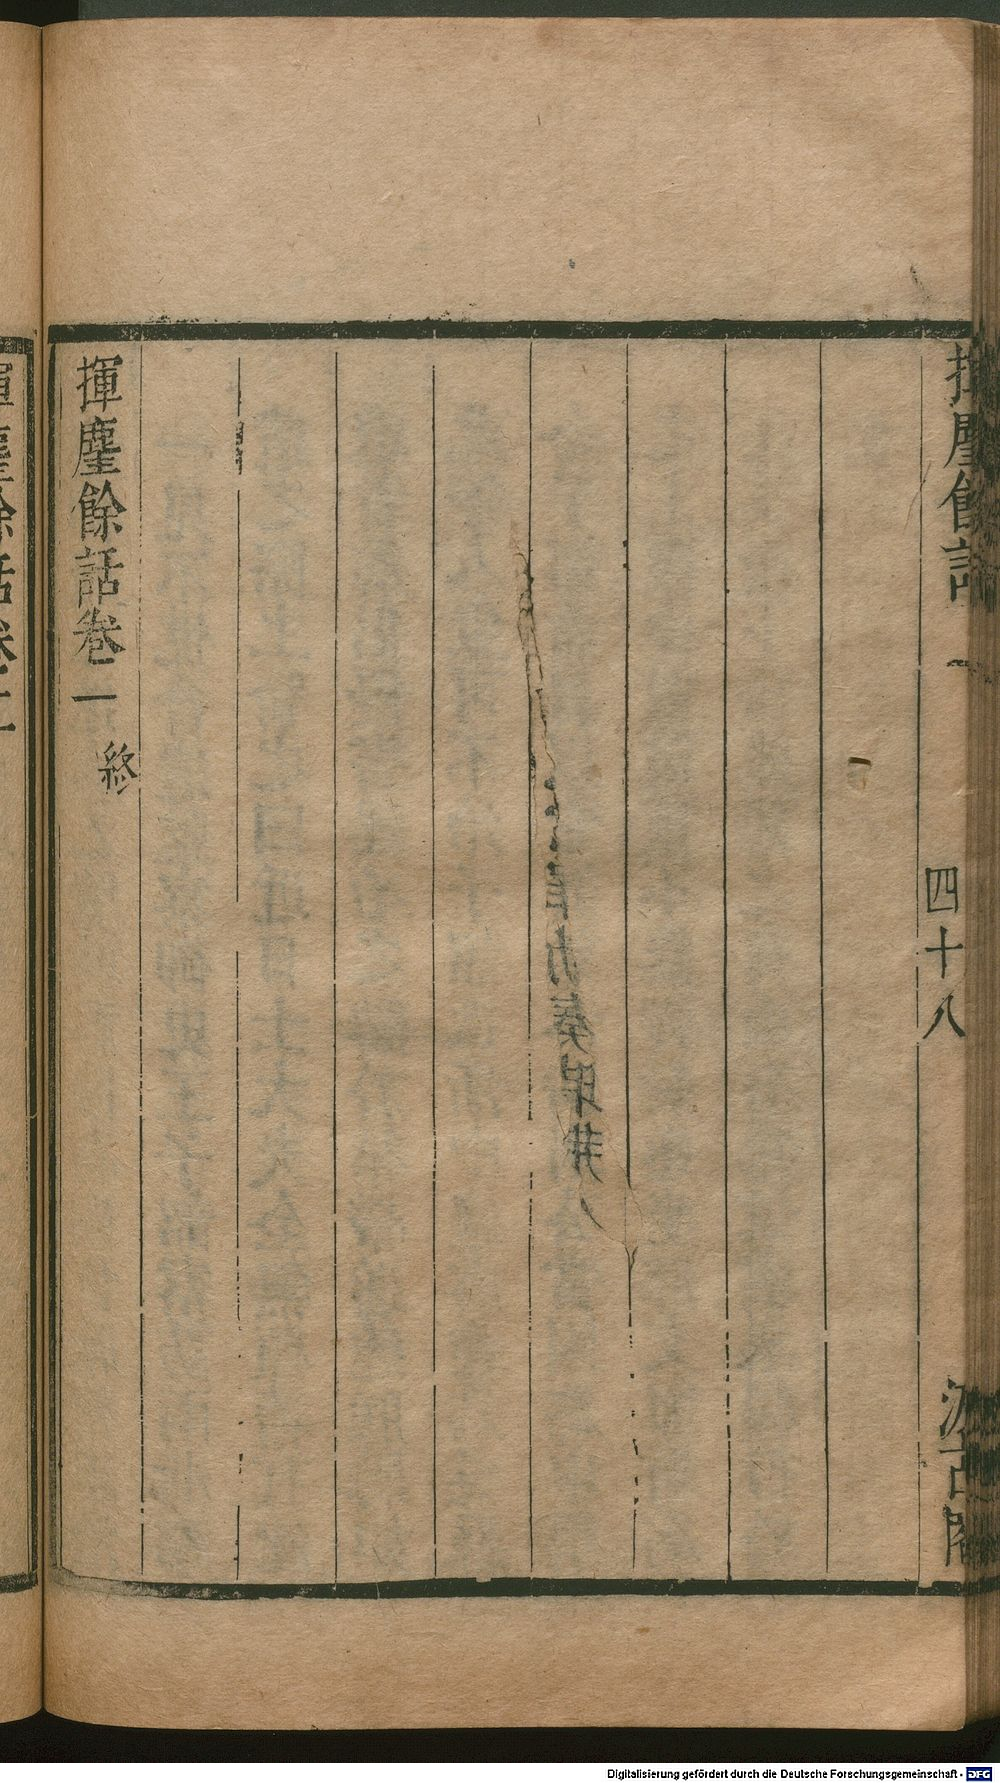 揮麈餘話 一
四十八
汲古閣
揮麈餘話卷一 終
揮麈餘話卷二
Digitalisierung gefördert durch die Deutsche Forschungsgemeinschaft - DFG